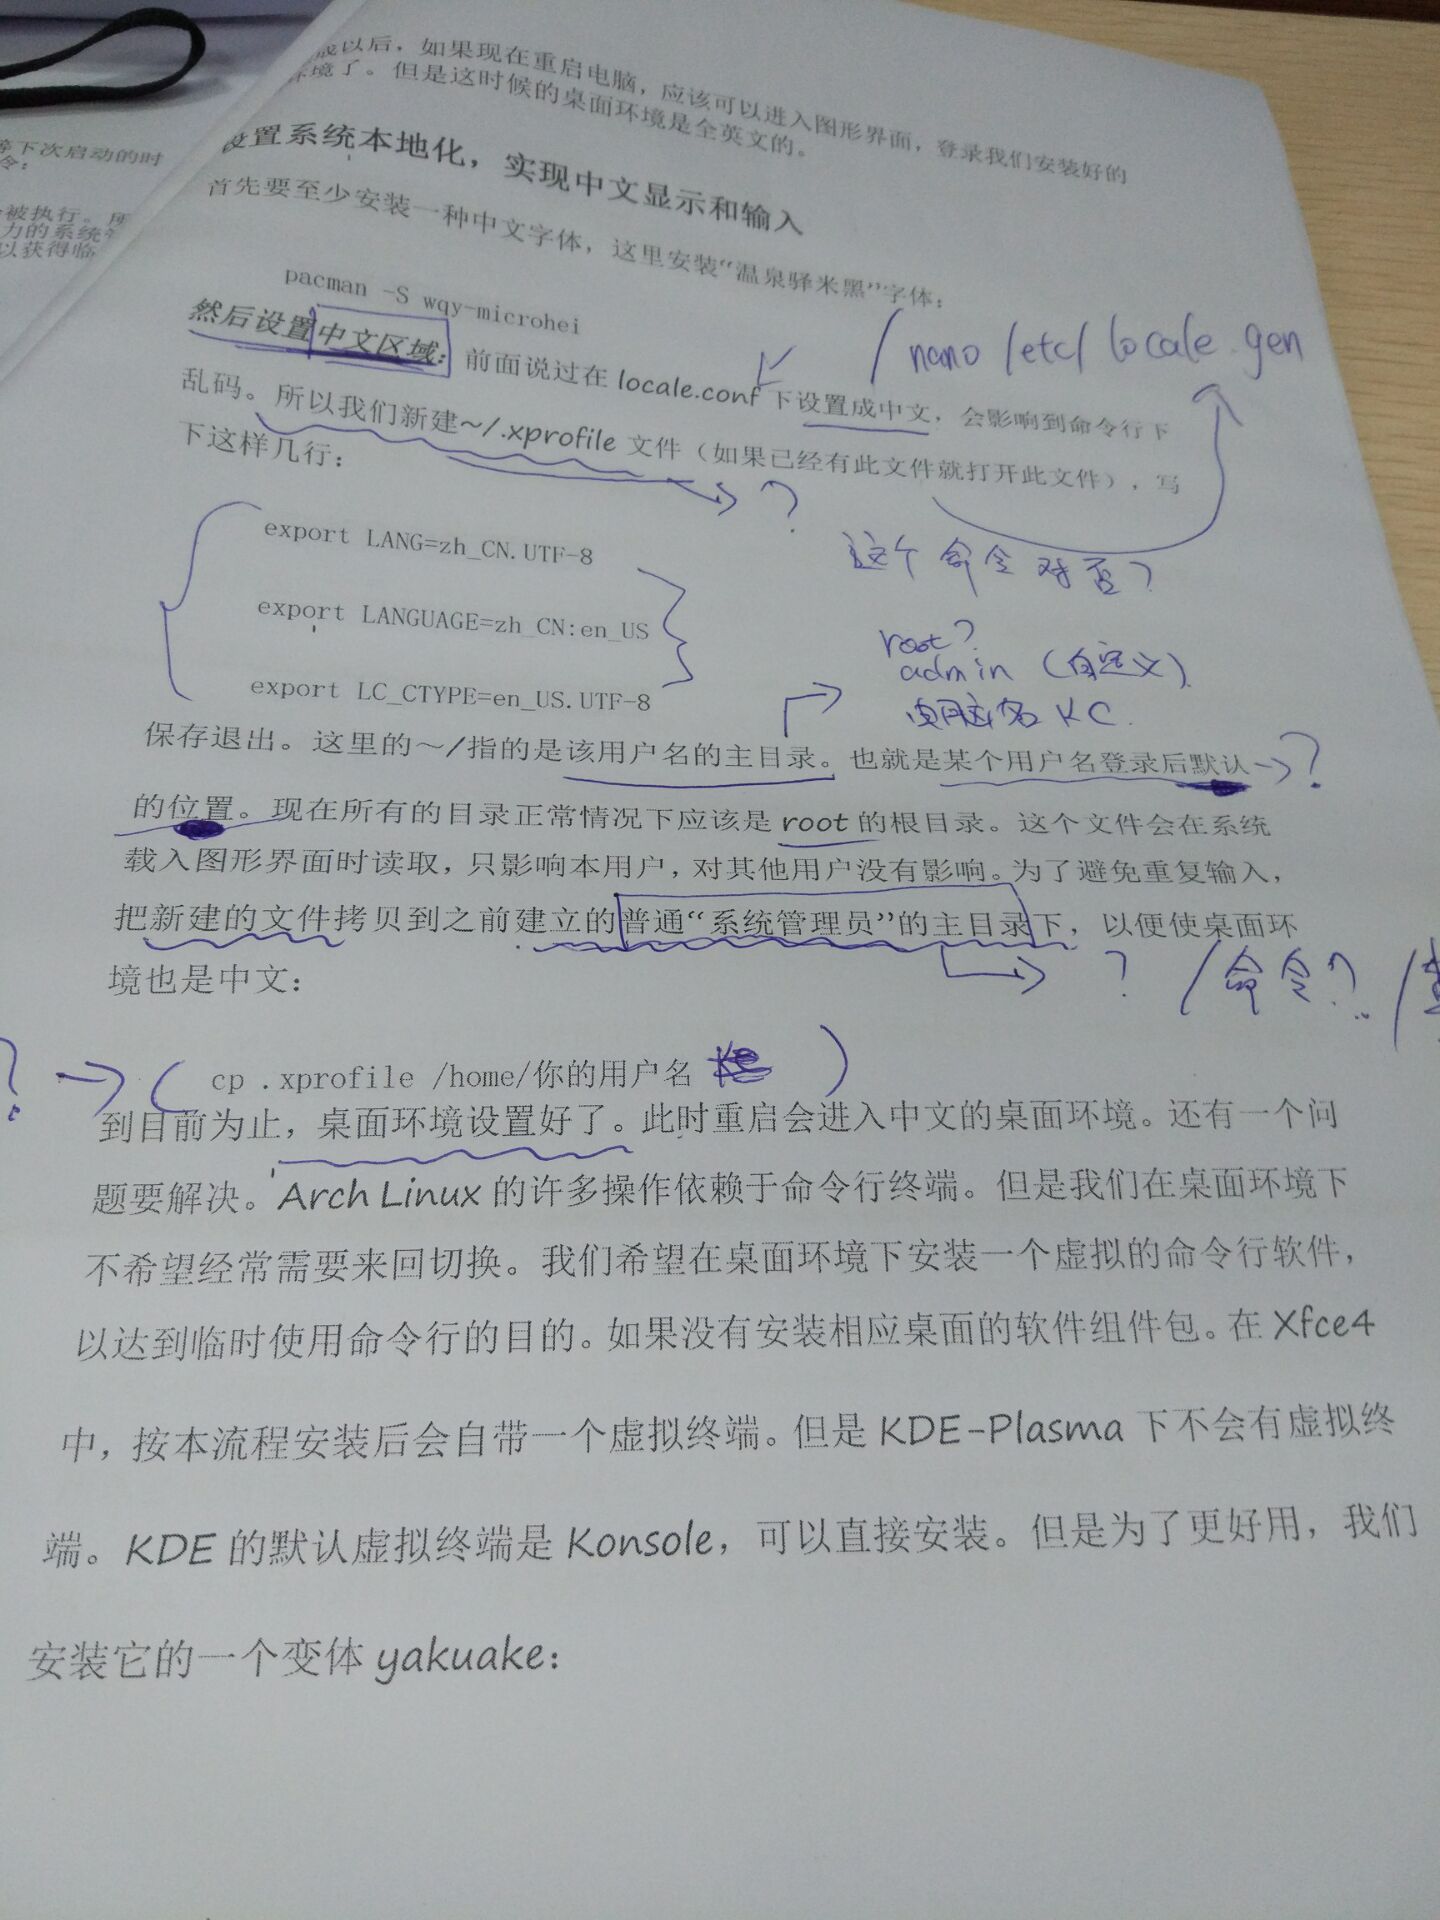 等下次启动的时
令：
被执行。所
力的系统
以获得临
成以后，如果现在重启电脑，应该可以进入图形界面，登录我们安装好的
环境了。但是这时候的桌面环境是全英文的。
设置系统本地化，实现中文显示和输入
首先要至少安装一种中文字体，这里安装“温泉驿米黑”字体：
pacman -S wqy-microhei
/nano /etc/ locale.gen
然后设置中文区域：前面说过在 locale.conf 下设置成中文，会影响到命令行下
乱码。所以我们新建~/.xprofile 文件（如果已经有此文件就打开此文件），写
下这样几行：
?
这个命令对否？
export LANG=zh_CN.UTF-8
export LANGUAGE=zh_CN:en_US
export LC_CTYPE=en_US.UTF-8
root?
admin（自定义）
电脑名 KC.
保存退出。这里的～/指的是该用户名的主目录。也就是某个用户名登录后默认
?
的位置。现在所有的目录正常情况下应该是 root 的根目录。这个文件会在系统
载入图形界面时读取，只影响本用户，对其他用户没有影响。为了避免重复输入，
把新建的文件拷贝到之前建立的普通“系统管理员”的主目录下，以便使桌面环
境也是中文：
? /命令？.. /
?
(cp .xprofile /home/你的用户名 )
到目前为止，桌面环境设置好了。此时重启会进入中文的桌面环境。还有一个问
题要解决。Arch Linux 的许多操作依赖于命令行终端。但是我们在桌面环境下
不希望经常需要来回切换。我们希望在桌面环境下安装一个虚拟的命令行软件，
以达到临时使用命令行的目的。如果没有安装相应桌面的软件组件包。在 Xfce4
中，按本流程安装后会自带一个虚拟终端。但是 KDE-Plasma 下不会有虚拟终
端。KDE 的默认虚拟终端是 Konsole，可以直接安装。但是为了更好用，我们
安装它的一个变体 yakuake：